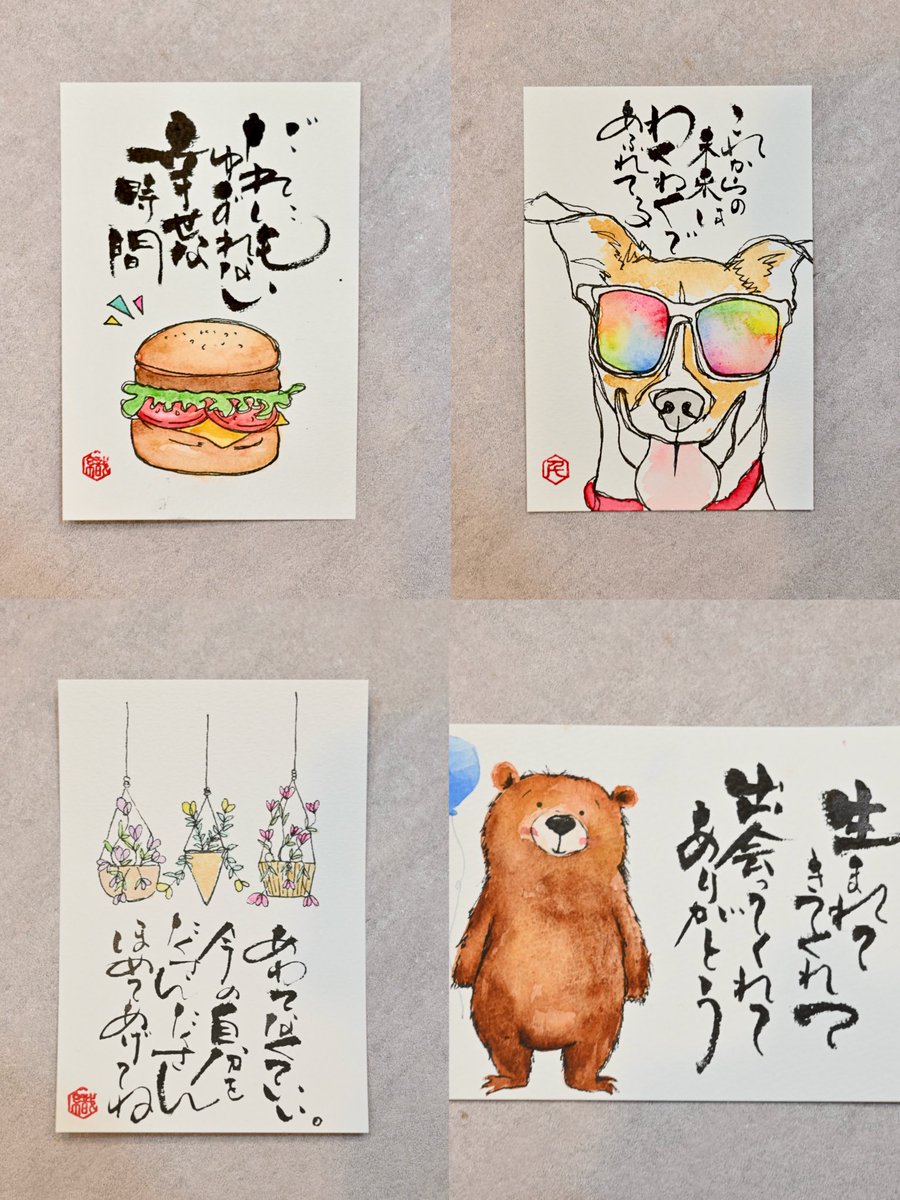 だれしも
ゆずれない
幸せな
時間
織
これからの
未来は
わくわくで
あふれてる
あわてなくていい。
今の自分を
たくさんたくさん
ほめてあげてね
織
生まれて
きてくれて
出会ってくれて
ありがとう